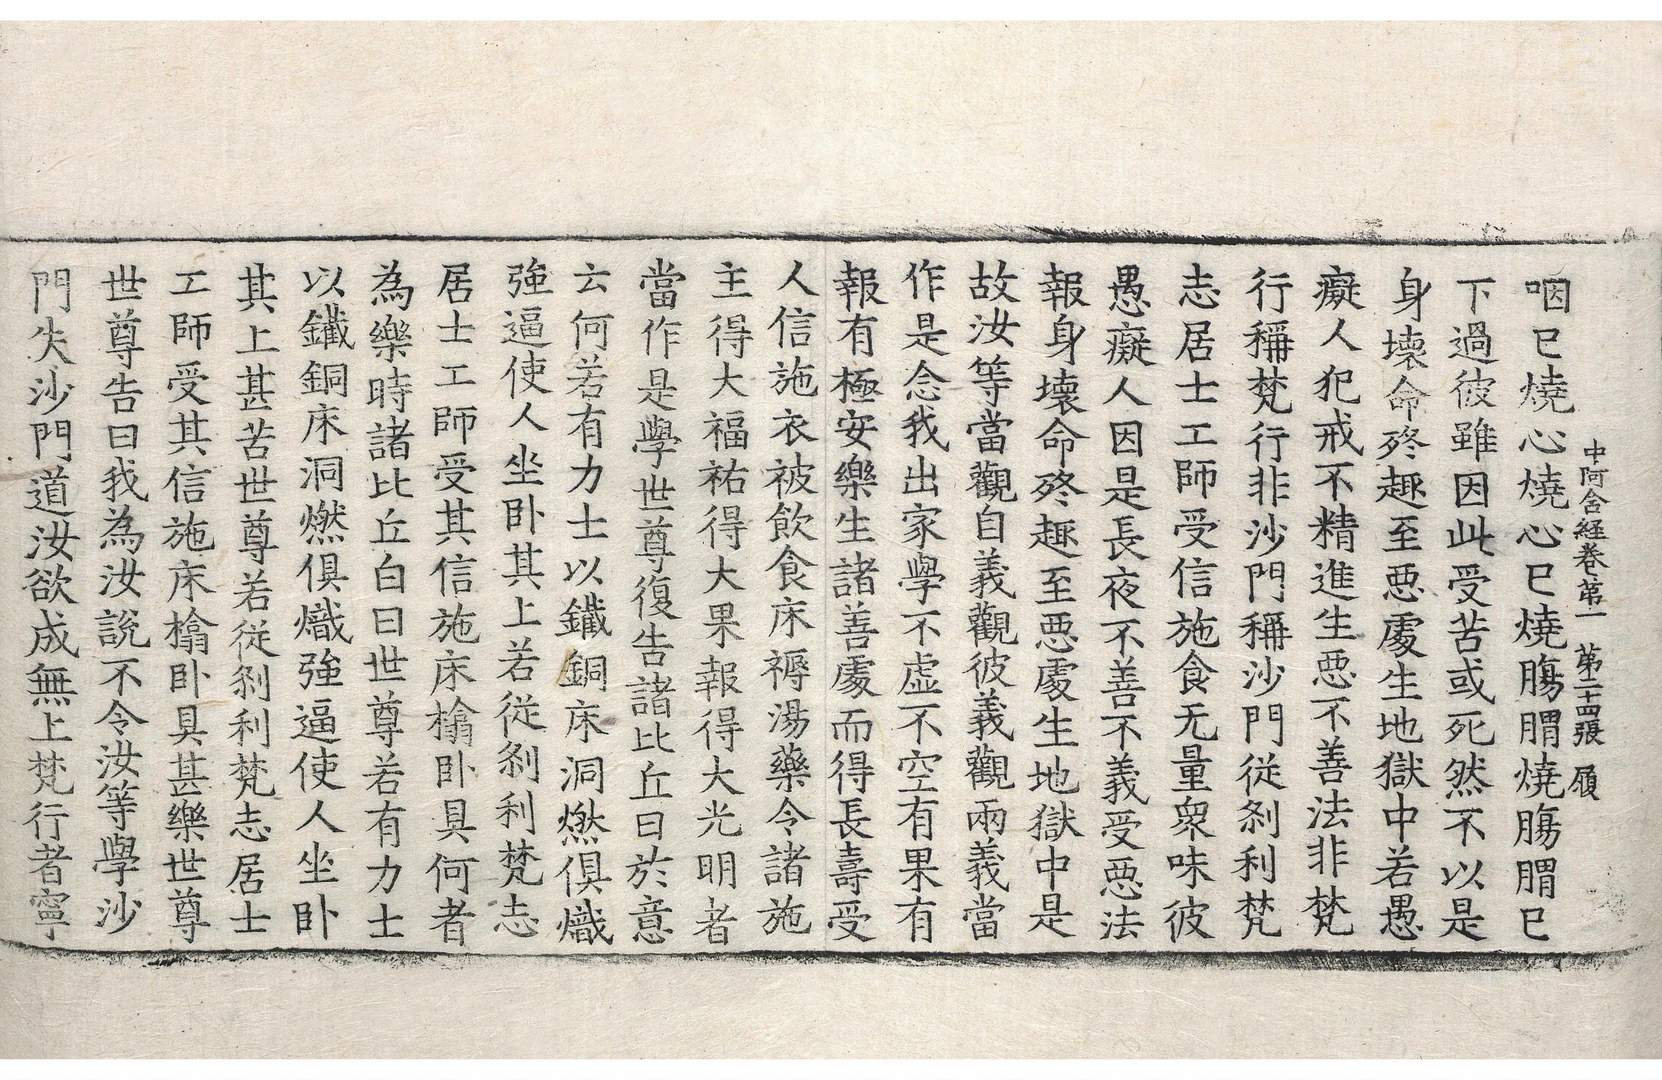 中阿含經卷第一　第二十四張　履
咽已燒心燒心已燒膓膶燒膓膶已
下過彼雖因此受苦或死然不以是
身壞命終趣至惡處生地獄中若愚
癡人犯戒不精進生惡不善法非梵
行稱梵行非沙門稱沙門從剎利梵
志居士工師受信施食无量衆味彼
愚癡人因是長夜不善不義受惡法
報身壞命終趣至惡處生地獄中是
故汝等當觀自義觀彼義觀兩義當
作是念我出家學不虛不空有果有
報有極安樂生諸善處而得長壽受
人信施衣被飲食床褥湯藥令諸施
主得大福祐得大果報得大光明者
當作是學世尊復告諸比丘曰於意
云何若有力士以鐵銅床洞燃俱熾
強逼使人坐卧其上若從剎利梵志
居士工師受其信施床㯓卧具何者
為樂時諸比丘白曰世尊若有力士
以鐵銅床洞燃俱熾強逼使人坐卧
其上甚苦世尊若從剎利梵志居士
工師受其信施床㯓卧具甚樂世尊
世尊告曰我為汝說不令汝等學沙
門失沙門道汝欲成無上梵行者寧